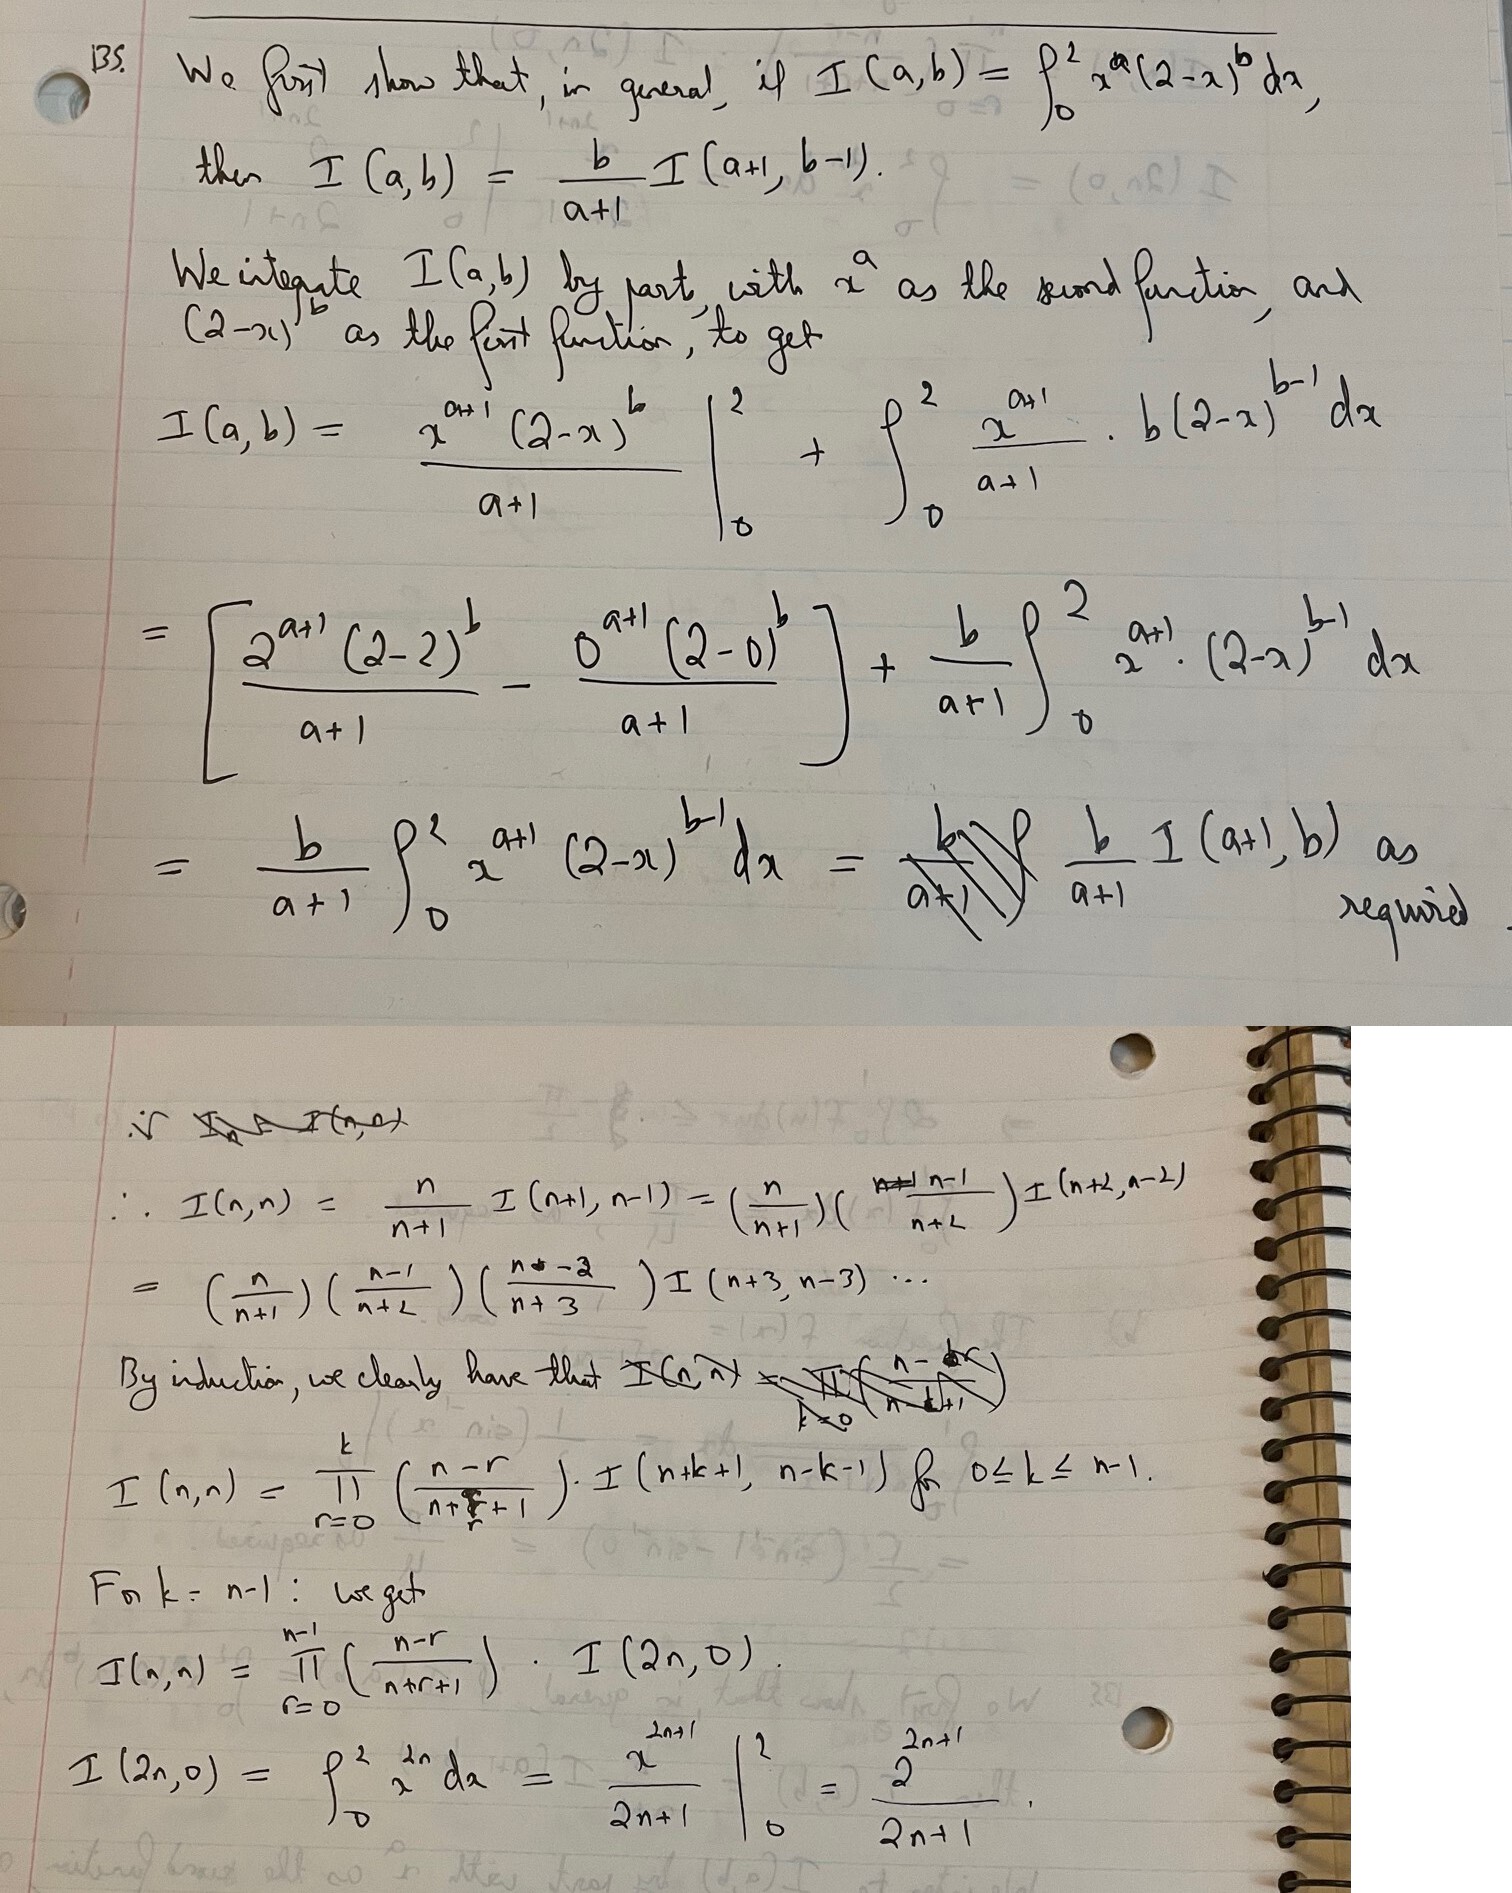 B5. We first show that, in general, if I(a,b) = ∫₀² xᵃ(2-x)ᵇ dx,
then I(a,b) = b/(a+1) I(a+1, b-1).
We integrate I(a,b) by parts, with xᵃ as the second function, and
(2-x)ᵇ as the first function, to get
I(a,b) = x^(a+1) (2-x)^b / (a+1) |₀² + ∫₀² x^(a+1)/(a+1) · b(2-x)^(b-1) dx
= [ 2^(a+1) (2-2)^b / (a+1) - 0^(a+1) (2-0)^b / (a+1) ] + b/(a+1) ∫₀² x^(a+1) · (2-x)^(b-1) dx
= b/(a+1) ∫₀² x^(a+1) (2-x)^(b-1) dx = b/(a+1) I(a+1, b) as
required.
∴ I(n,n) = n/(n+1) I(n+1, n-1) = (n/(n+1)) ((n-1)/(n+2)) I(n+2, n-2)
= (n/(n+1)) ((n-1)/(n+2)) ((n-2)/(n+3)) I(n+3, n-3) ...
By induction, we clearly have that
I(n,n) = ∏_{r=0}^{k} ((n-r)/(n+r+1)) · I(n+k+1, n-k-1) for 0 ≤ k ≤ n-1.
For k = n-1 : we get
I(n,n) = ∏_{r=0}^{n-1} ((n-r)/(n+r+1)) · I(2n, 0).
I(2n,0) = ∫₀² x^(2n) dx = x^(2n+1)/(2n+1) |₀² = 2^(2n+1)/(2n+1).